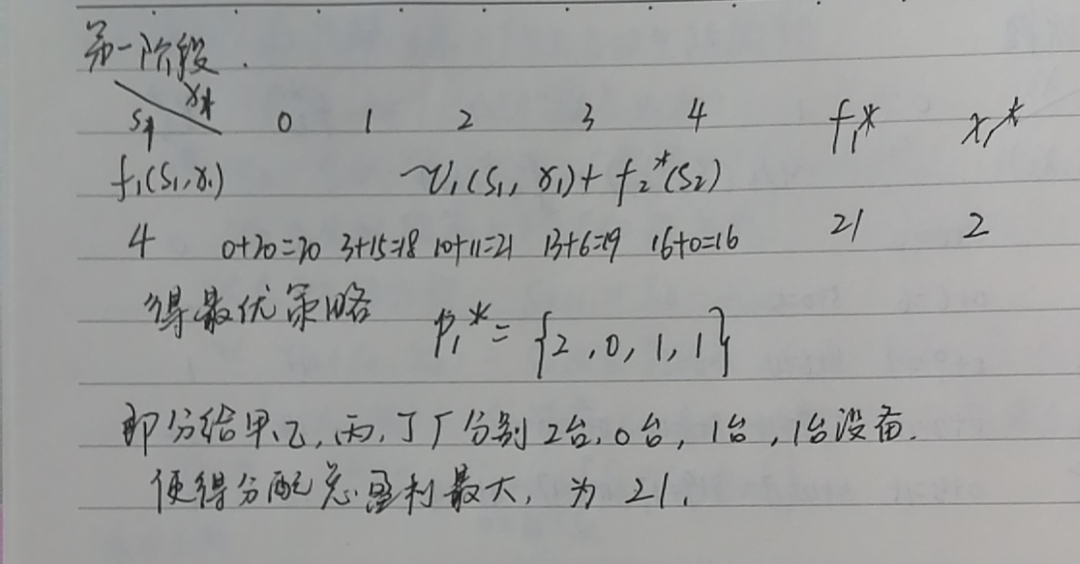 第一阶段.
S₁ x₁ 0 1 2 3 4 f₁* x₁*
f₁(S₁,x₁) v₁(S₁, x₁)+f₂*(S₂)
4 0+20=20 3+15=18 10+11=21 13+6=19 16+0=16 21 2
得最优策略 p₁*={2,0,1,1}
即分给甲、乙,丙,丁厂分别2台,0台,1台,1台设备.
使得分配总盈利最大,为21.